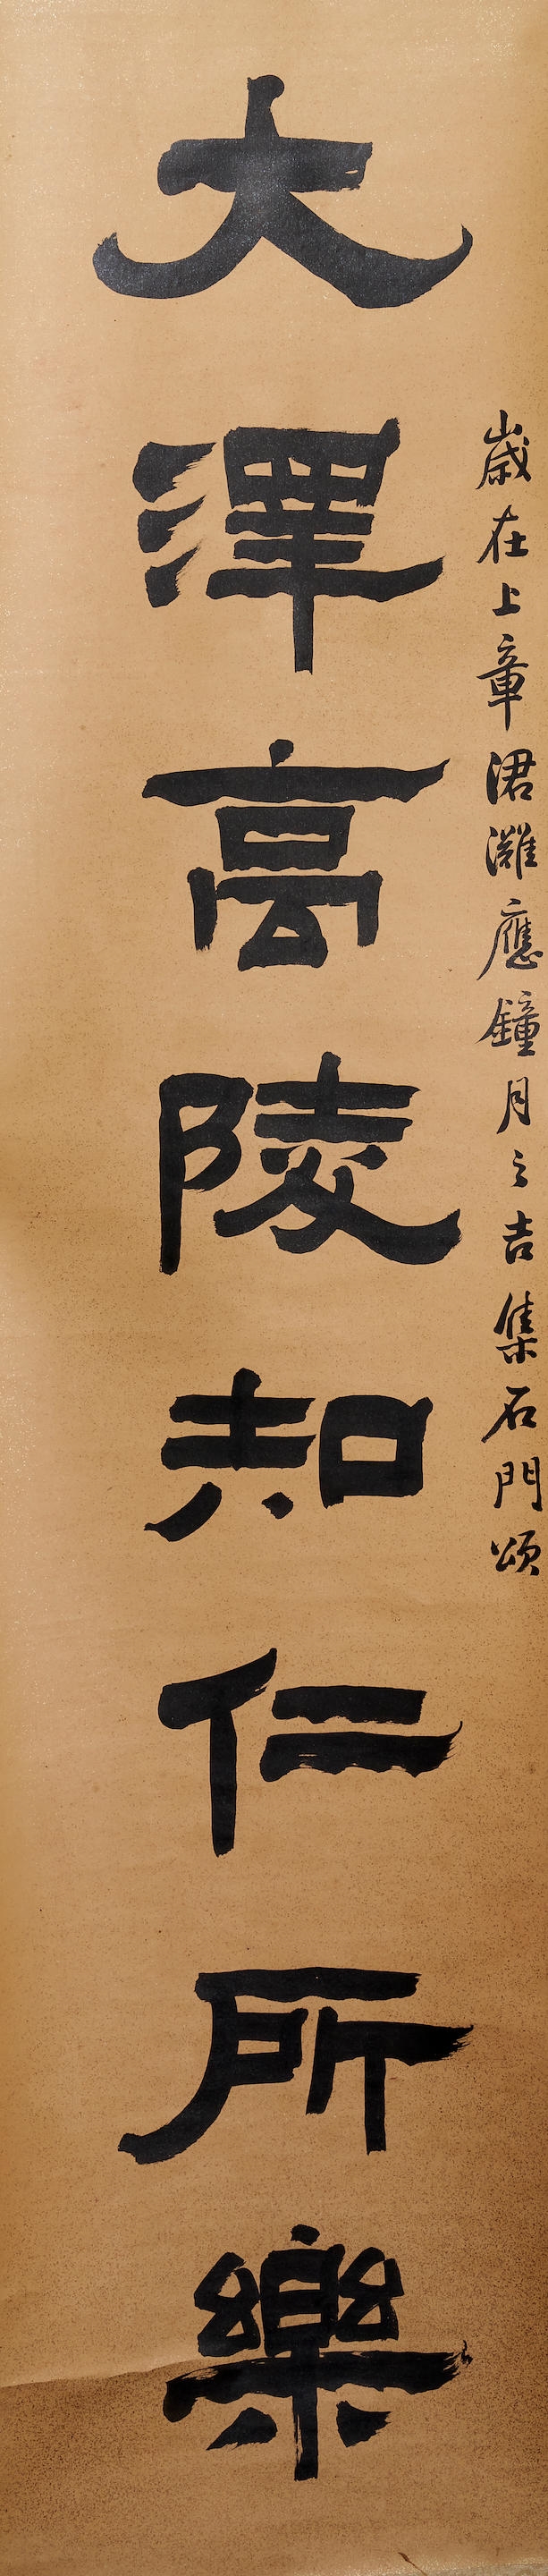 歲在上章涒灘應鐘月之吉集石門頌
大澤高陵知仁所樂